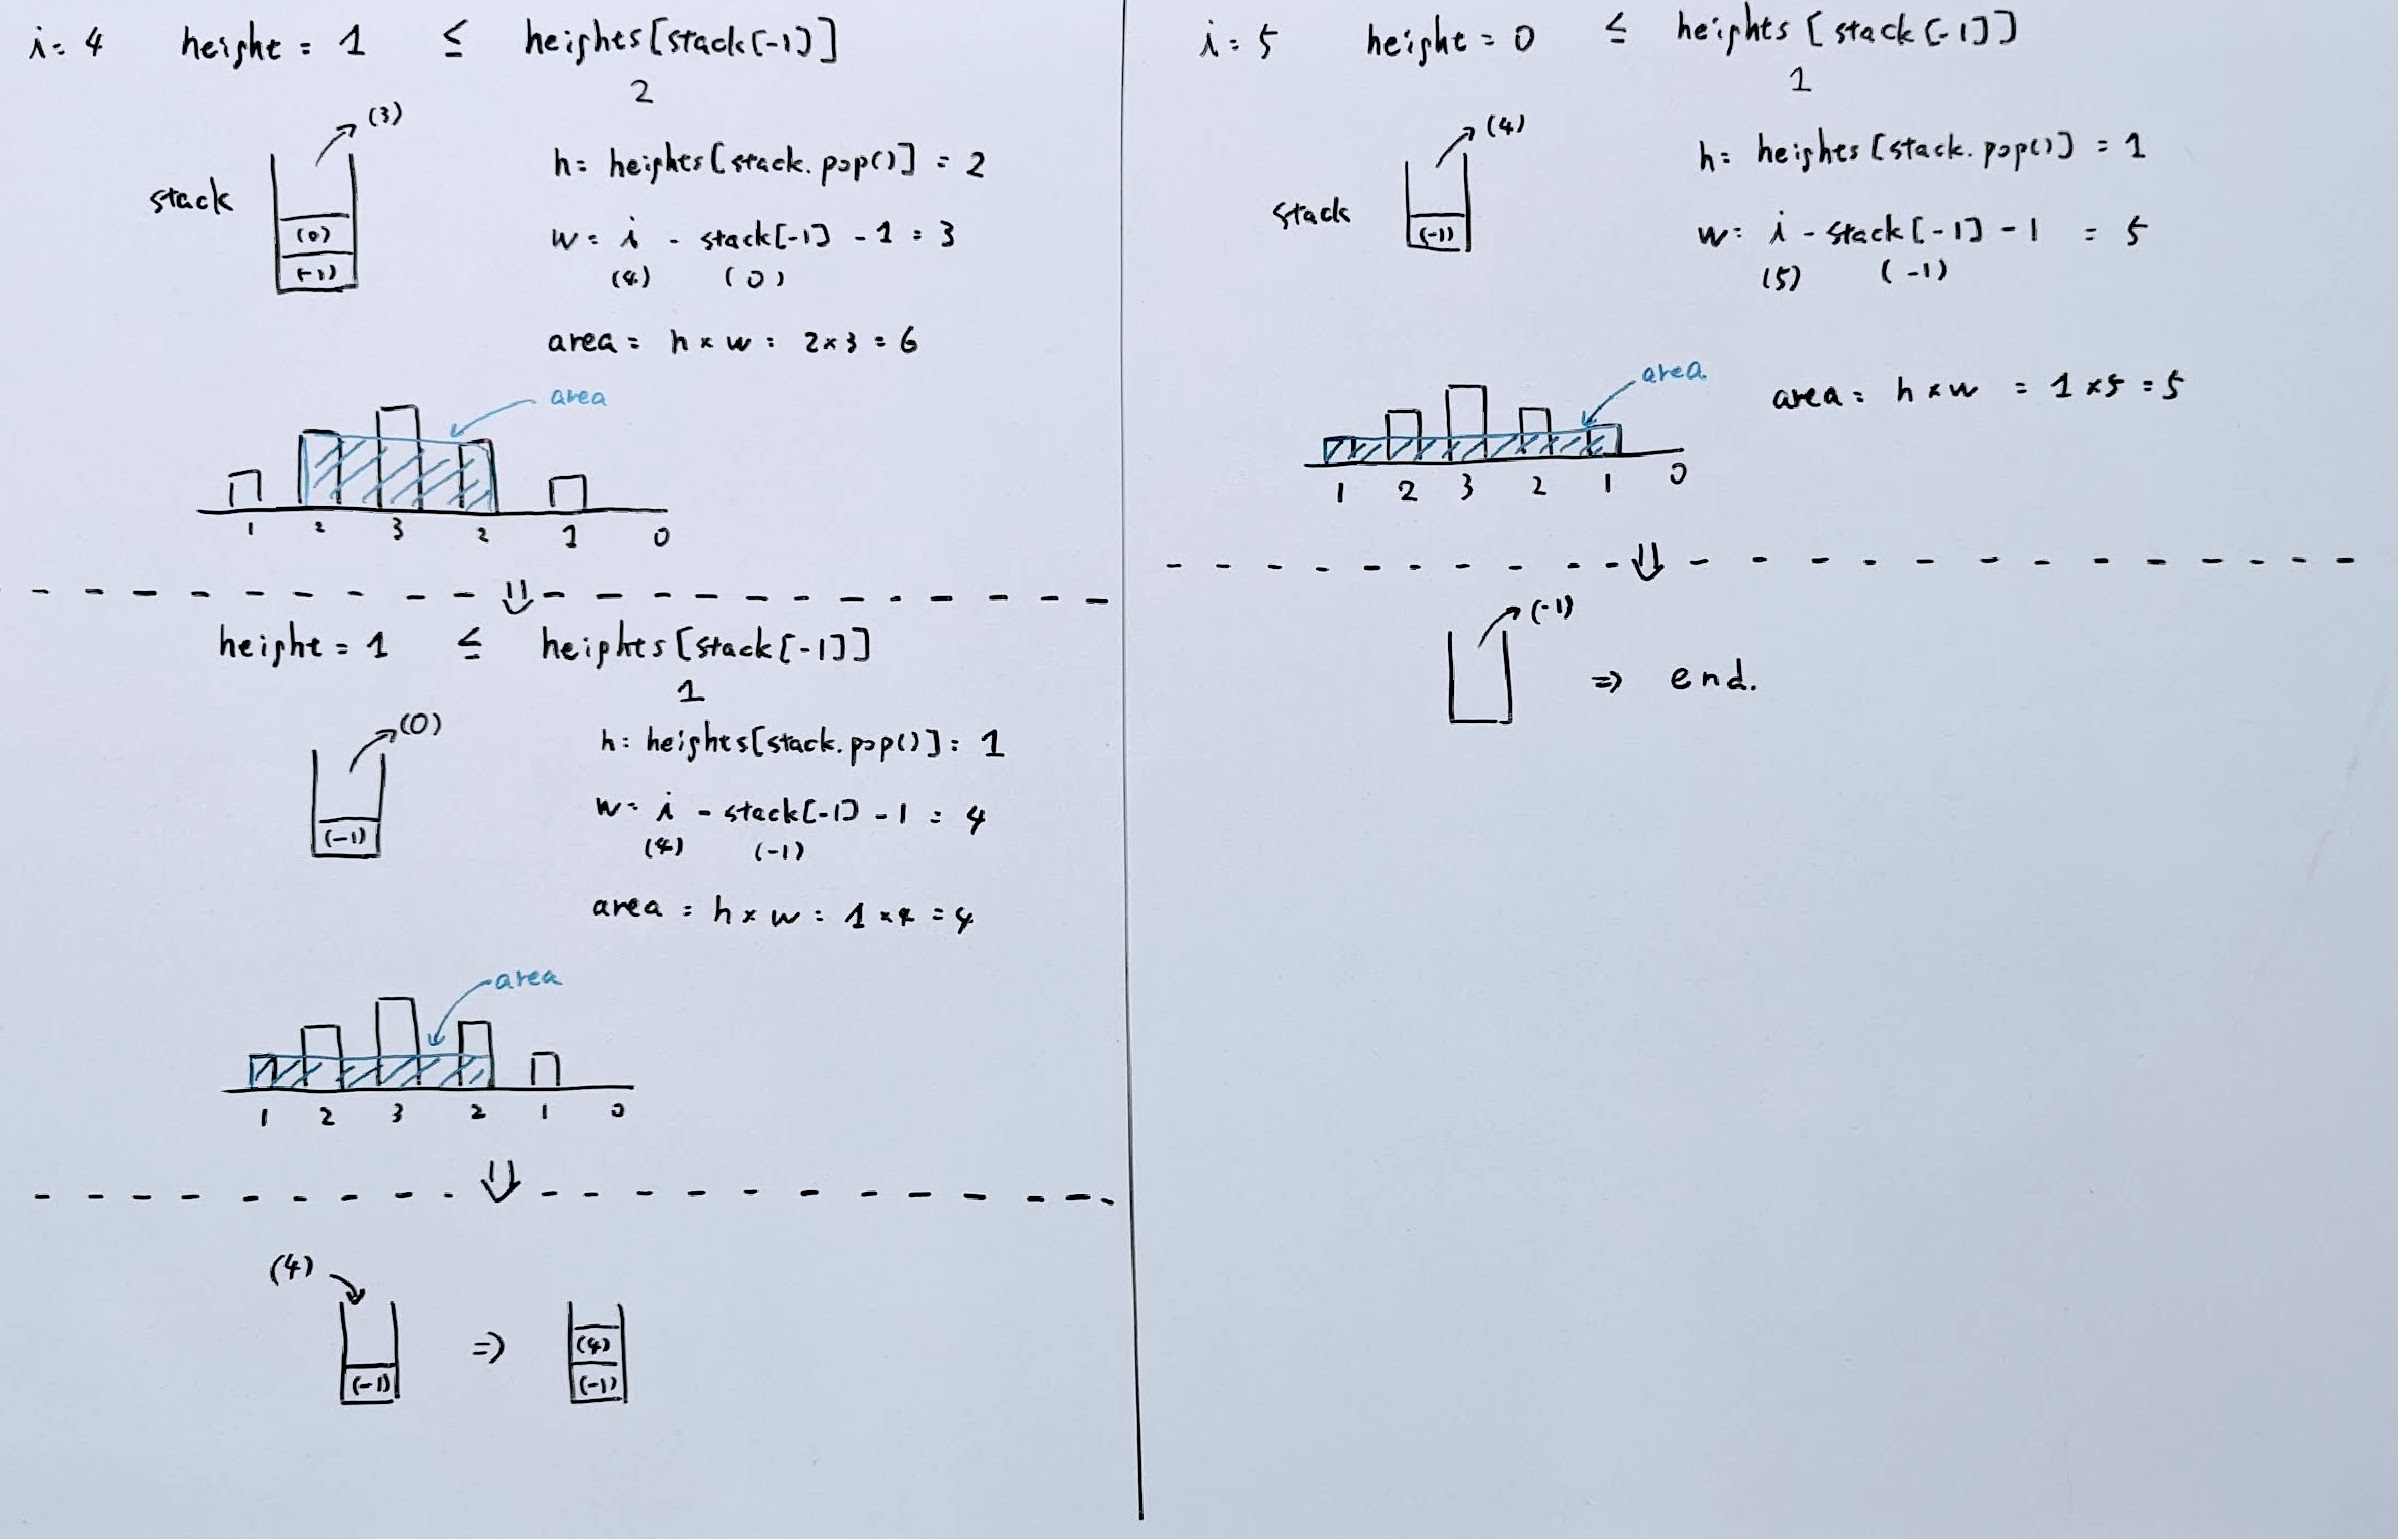 i = 4 height = 1 ≤ heights[stack[-1]]
2
(3)
stack
(0)
(-1)
h = heights[stack.pop()] = 2
w = i - stack[-1] - 1 = 3
(4) (0)
area = h × w = 2 × 3 = 6
area
1 2 3 2 1 0
height = 1 ≤ heights[stack[-1]]
1
(0)
(-1)
h = heights[stack.pop()] = 1
w = i - stack[-1] - 1 = 4
(4) (-1)
area = h × w = 1 × 4 = 4
area
1 2 3 2 1 0
(4)
(-1) ⇒ (4)
(-1)
i = 5 height = 0 ≤ heights[stack[-1]]
1
(4)
stack
(-1)
h = heights[stack.pop()] = 1
w = i - stack[-1] - 1 = 5
(5) (-1)
area
area = h × w = 1 × 5 = 5
1 2 3 2 1 0
(-1)
⇒ end.